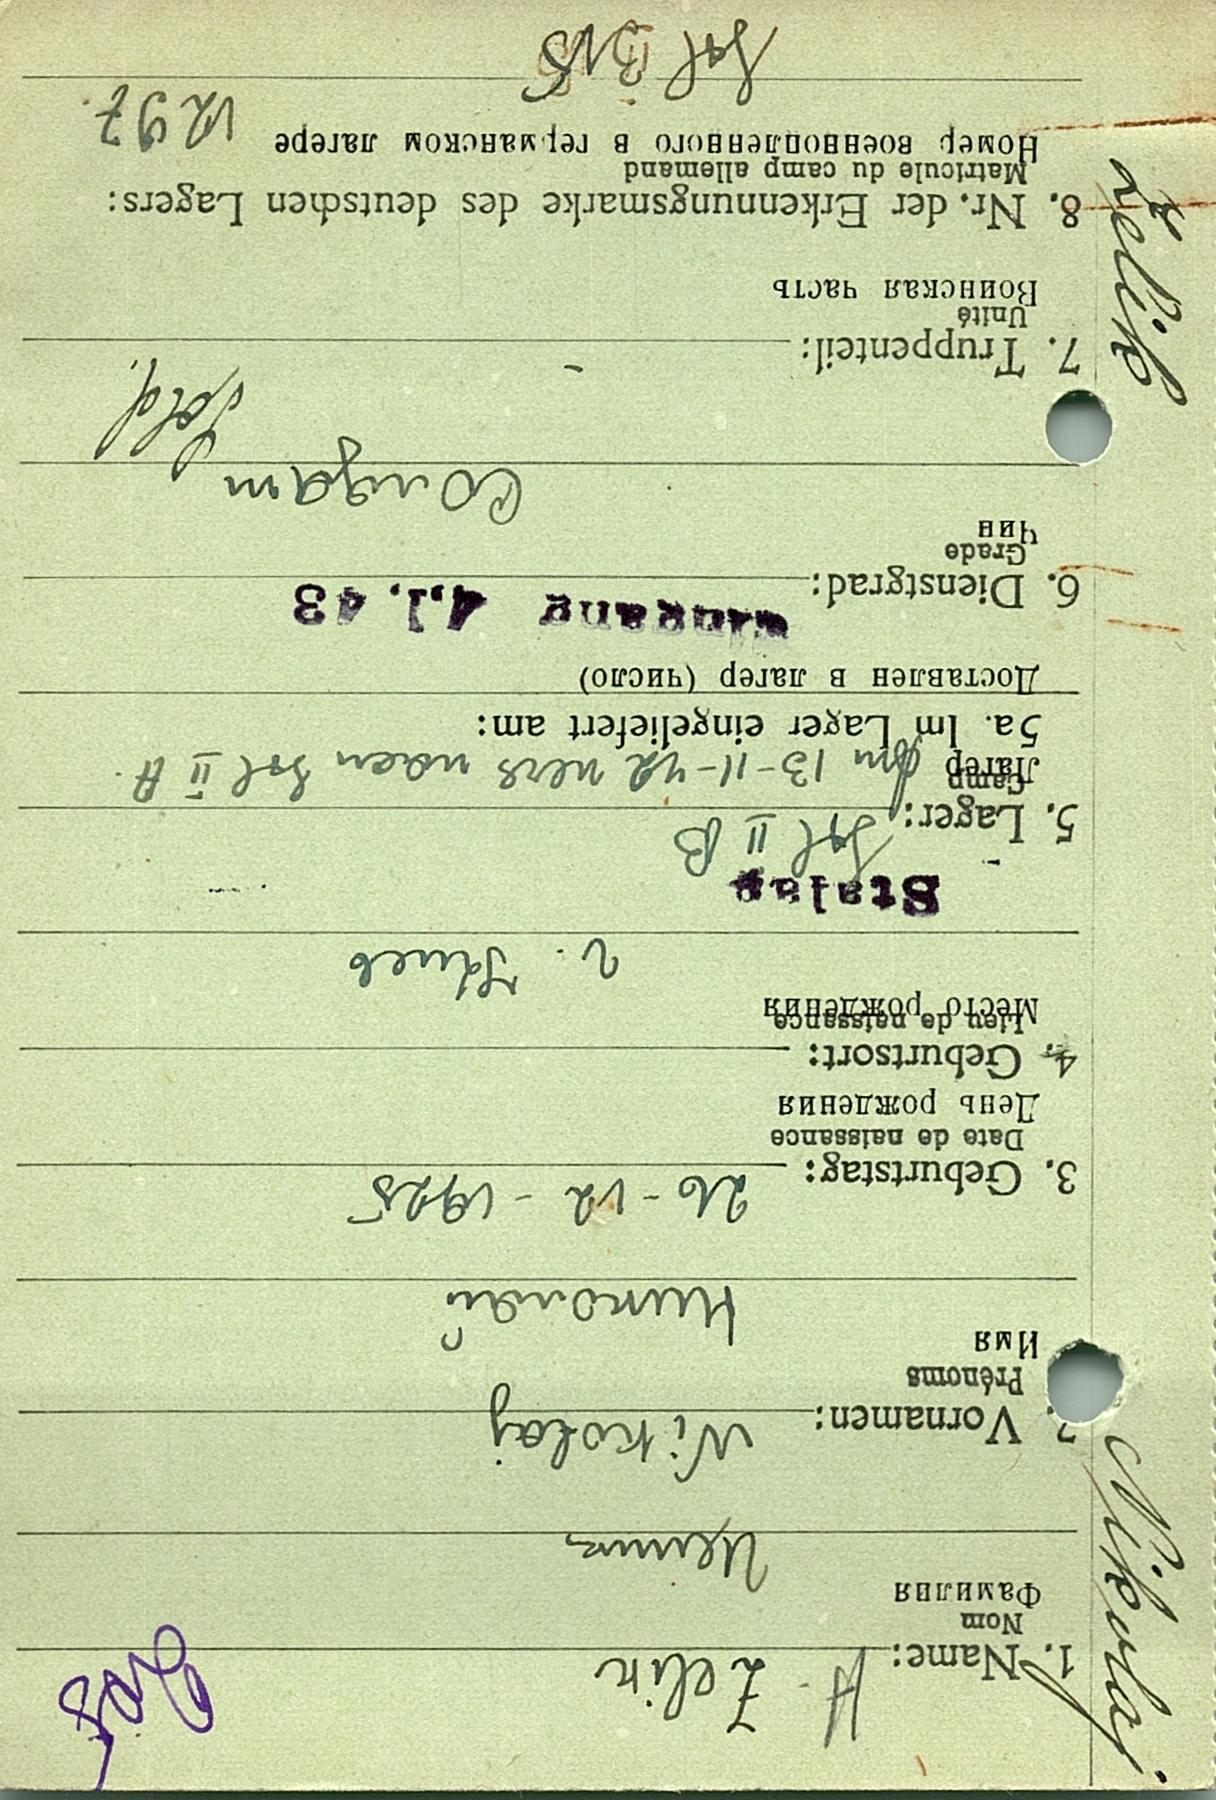 Nikolaj Zelik
1. Name: H. Zelik
Nom
Фамилия
2. Vornamen: Nikolaj
Prénoms
Имя
Николай
3. Geburtstag: 26-12-1925
Date de naissance
День рождения
4. Geburtsort:
Lieu de naissance
Место рождения
г. Киев
Stalag
5. Lager: Stl II B
Camp
Лагерь Am 13-11-42 vers nach Stl II A.
5a. Im Lager eingeliefert am:
Доставлен в лагер (число)
Eingang 4.1.43
6. Dienstgrad:
Grade
Чин
Солдат
Sold.
7. Truppenteil: -
Unité
Воинская часть
8. Nr. der Erkennungsmarke des deutschen Lagers:
Matricule du camp allemand
Номер военнопленного в германском лагере 1297.